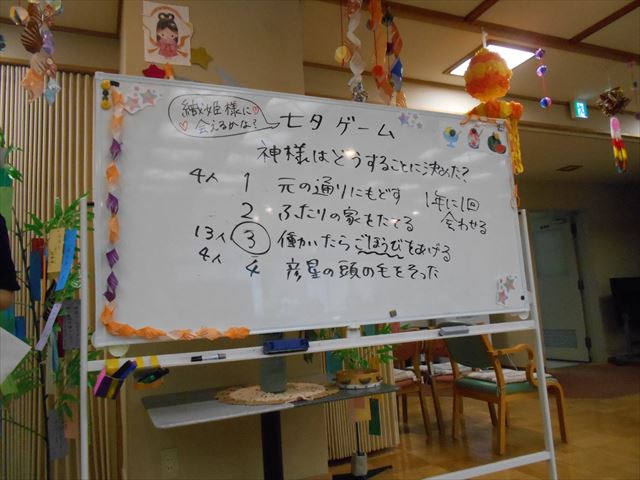 織姫様に
会えるかな?
七夕ゲーム
神様はどうすることに決めた?
4人 1 元の通りにもどす
1年に1回
会わせる
2 ふたりの家をたてる
13人 3 働いたらごほうびをあげる
4人 4 彦星の頭の毛をそった